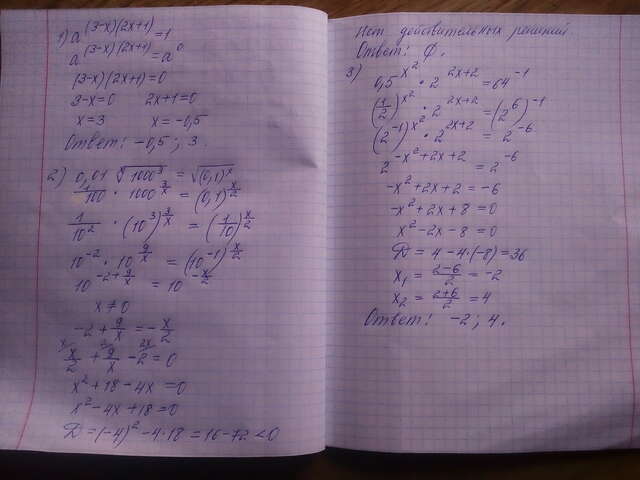 1) a^((3-x)(2x+1)) = 1
a^((3-x)(2x+1)) = a^0
(3-x)(2x+1)=0
3-x=0 2x+1=0
x=3 x=-0,5
Ответ: -0,5; 3.
2) 0,01 ˣ√(1000³) = √((0,1)^x)
1/100 · 1000^(3/x) = (0,1)^(x/2)
1/10² · (10³)^(3/x) = (1/10)^(x/2)
10^(-2) · 10^(9/x) = (10^(-1))^(x/2)
10^(-2+9/x) = 10^(-x/2)
x≠0
-2+9/x = -x/2
x/2 + 9/x - 2 = 0
x²+18-4x=0
x²-4x+18=0
D=(-4)²-4·18=16-72<0
Нет действительных решений.
Ответ: ∅.
3) 0,5^(x²) · 2^(2x+2) = 64^(-1)
(1/2)^(x²) · 2^(2x+2) = (2^6)^(-1)
(2^(-1))^(x²) · 2^(2x+2) = 2^(-6)
2^(-x²+2x+2) = 2^(-6)
-x²+2x+2=-6
-x²+2x+8=0
x²-2x-8=0
D=4-4·(-8)=36
x₁ = (2-6)/2 = -2
x₂ = (2+6)/2 = 4
Ответ: -2; 4.